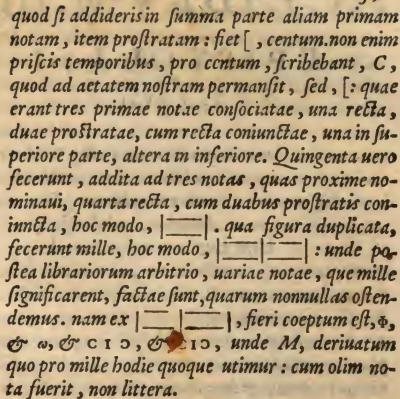 quod ſi addideris in ſumma parte aliam primam
notam, item proſtratam: fiet [, centum. non enim
priſcis temporibus, pro centum, ſcribebant, C,
quod ad aetatem noſtram permanſit, ſed, [: quae
erant tres primae notae conſociatae, una recta,
duae proſtratae, cum recta coniunctae, una in ſu-
periore parte, altera in inferiore. Quingenta uero
fecerunt, addita ad tres notas, quas proxime no-
minaui, quarta recta, cum duabus proſtratis con-
inncta, hoc modo, |__|. qua figura duplicata,
fecerunt mille, hoc modo, |__|__|: unde po-
ſtea librariorum arbitrio, uariae notae, que mille
ſignificarent, factae ſunt, quarum nonnullas oſten-
demus. nam ex |__|__|, fieri coeptum eſt, Φ,
& ω, & C I Ɔ, & C I Ɔ, unde M, deriuatum
quo pro mille hodie quoque utimur: cum olim no-
ta fuerit, non littera.